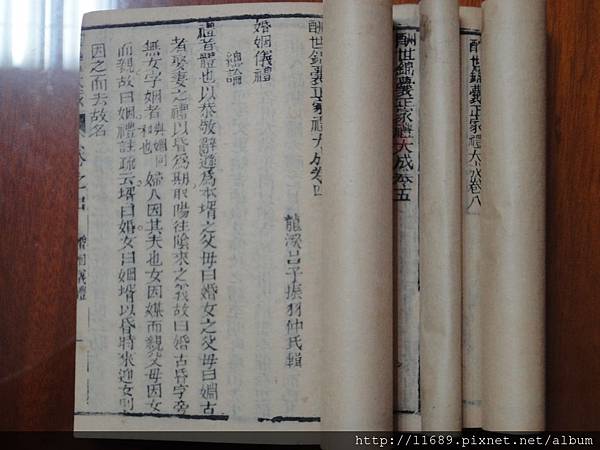 酬世錦囊正家禮大成卷八
酬世錦囊正家禮大成卷五
酬世錦囊正家禮大成卷四
龍溪呂子振羽仲氏輯
婚姻儀禮
總論
禮者體也以恭敬辭遜為本壻之父母曰婚女之父母曰姻古
者娶妻之禮以昏為期取陽往陰來之義故曰婚古昏字旁
無女字姻者 婦人因其夫也女因媒而親父母因女
而親故曰姻禮註疏云壻曰婚女曰姻壻以昏時來迎女則
因之而去故名
婚姻儀禮
http://11689.pixnet.net/album